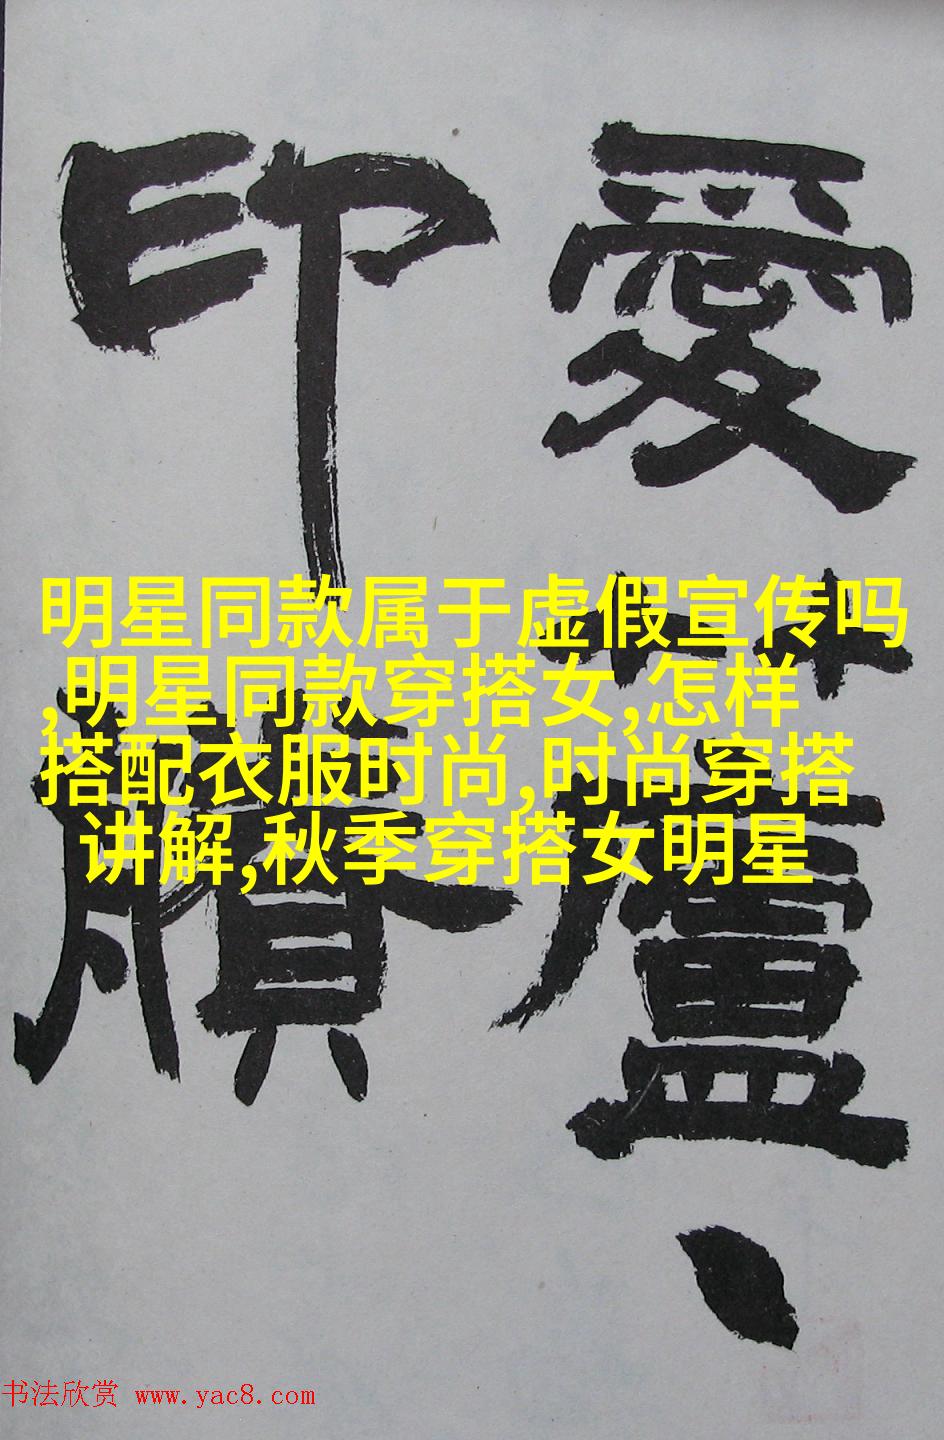 愛蘆、
印
明星同款属于虚假宣传吗
,明星同款穿搭女,怎样
搭配衣服时尚,时尚穿搭
讲解,秋季穿搭女明星
书法欣赏 www.yac8.com